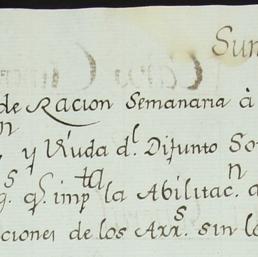 Sum
de Racion Semanaria à
y Viuda d.l Difunto So
q.s impta la Abilitac.n d
ciones de los Arr.s sin le